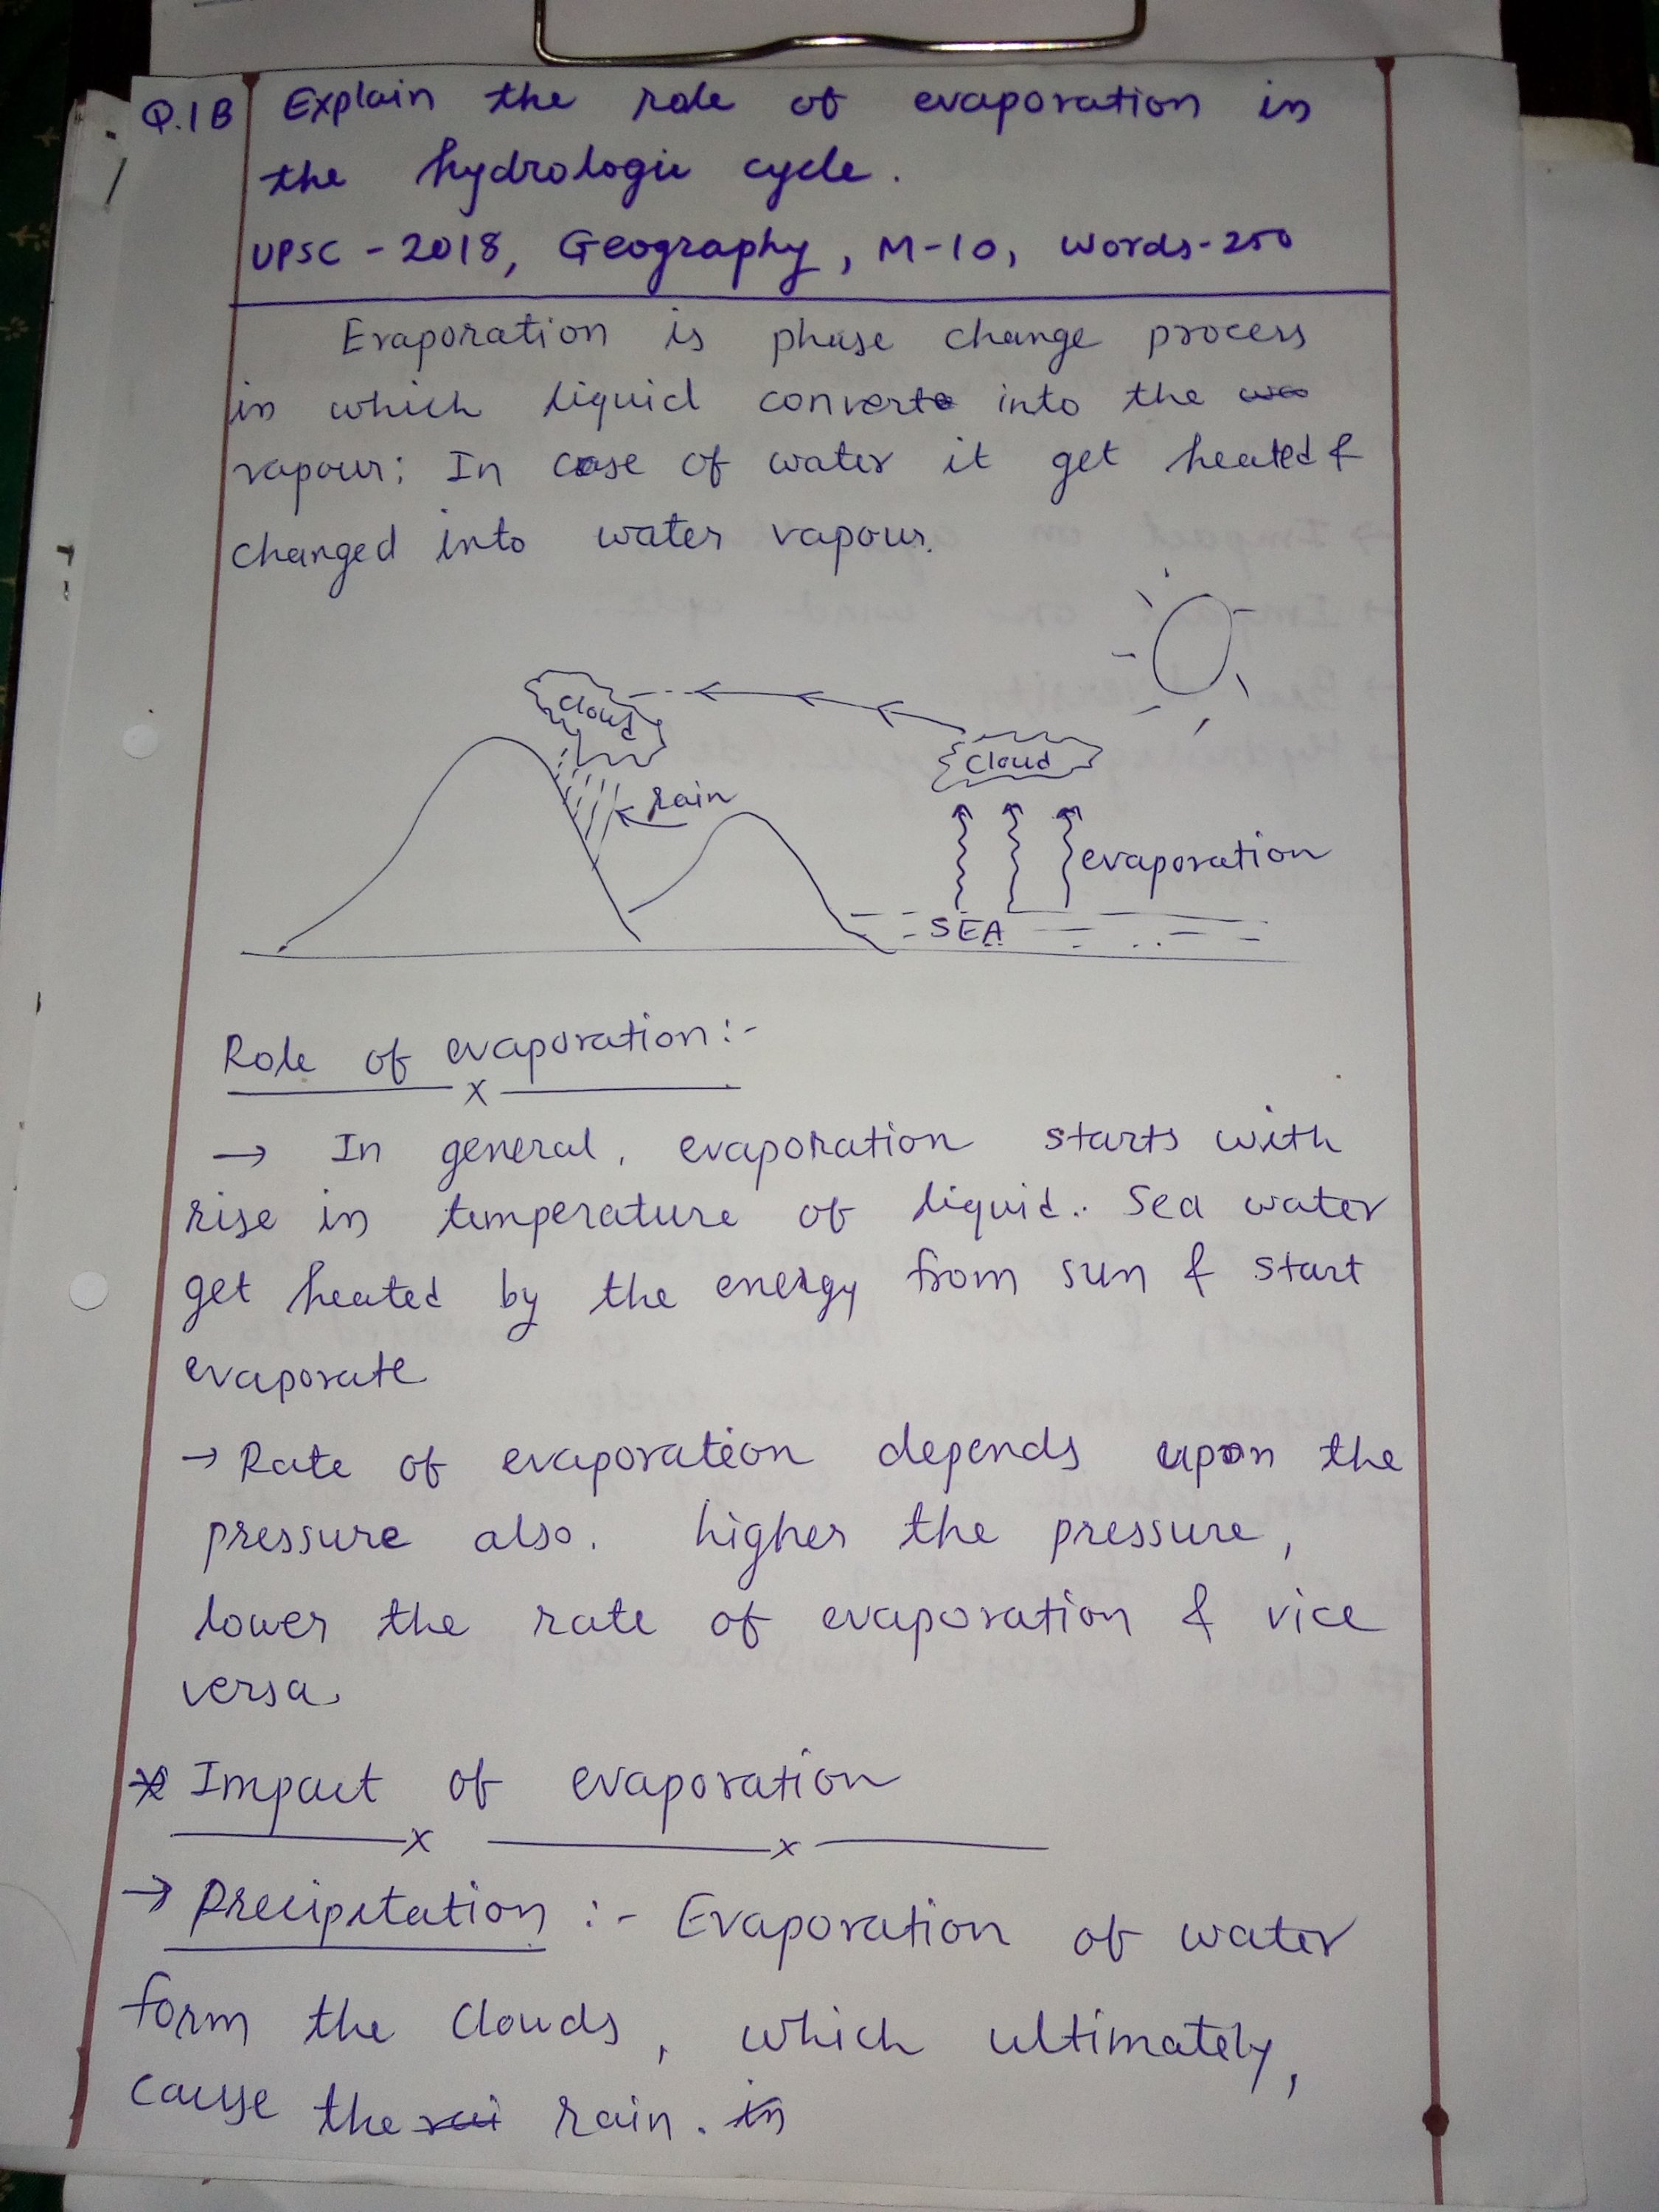 Q.1B Explain the role of evaporation in
the hydrologic cycle.
UPSC - 2018, Geography, M-10, words-250
Evaporation is phase change process
in which liquid convert into the
vapour; In case of water it get heated &
changed into water vapour.
cloud
cloud
rain
evaporation
SEA
Role of evaporation:-
x
→ In general, evaporation starts with
rise in temperature of liquid.. Sea water
get heated by the energy from sun & start
evaporate
→ Rate of evaporation depends upon the
pressure also. higher the pressure,
lower the rate of evaporation & vice
versa.
* Impact of evaporation
x x
→ Precipitation :- Evaporation of water
form the clouds, which ultimately,
cause the rain. in